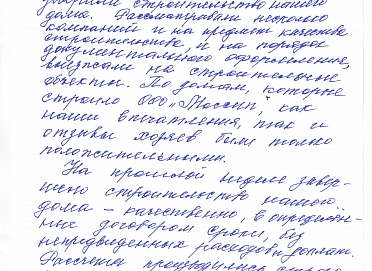 строительство нашего
дома. Рассматривали несколько
компаний и на предмет качества
строительства, и на порядок
документального оформления,
выезжали на строительные
объекты. По домам, которые
строило ООО „Тосаип", как
наши впечатления, так и
отзывы хозяев были только
положительными.
На прошлой неделе завер-
шено строительство нашего
дома – качественно, в определен-
ные договором сроки, без
непредвиденных расходов и доплат.
Рассчеты производились